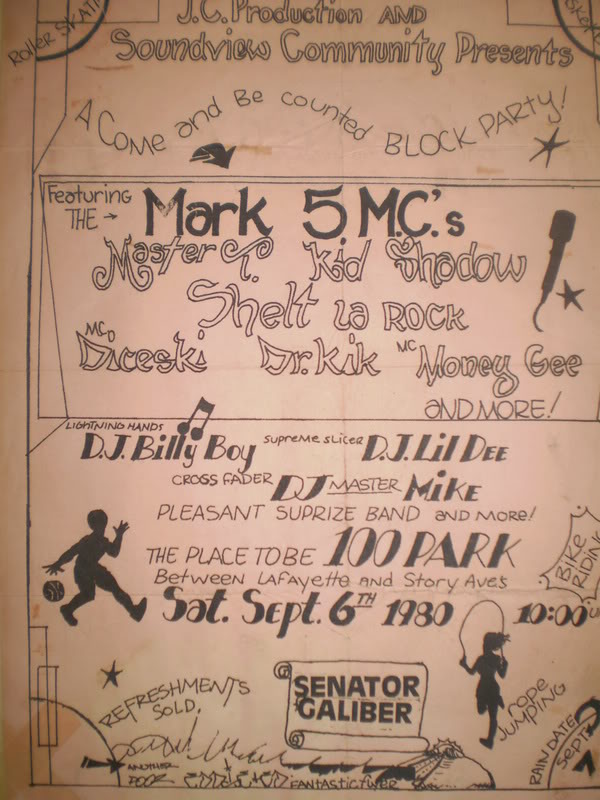 J.C. Production AND
Roller SKATI
Soundview Community Presents
A Come and Be counted BLOCK PARTY!
Featuring THE → Mark 5 M.C.'s
Master T. Kid Shadow
Shelt la ROCK
MC Diceski Dr. Kik MC Money Gee
AND MORE!
LIGHTNING HANDS D.J. Billy Boy SUPREME SLICER D.J. Lil DEE
CROSS FADER DJ MASTER MIKE
PLEASANT SUPRIZE BAND AND MORE!
THE PLACE TO BE 100 PARK
Between LAFAyette AND Story Ave's
BIKE RIDING
Sat. Sept. 6TH 1980 10:00
REFRESHMENTS SOLD.
SENATOR GALIBER
rope JUMPING
RAIN DATE Sept
ANOTHER FANTASTIC FLYER